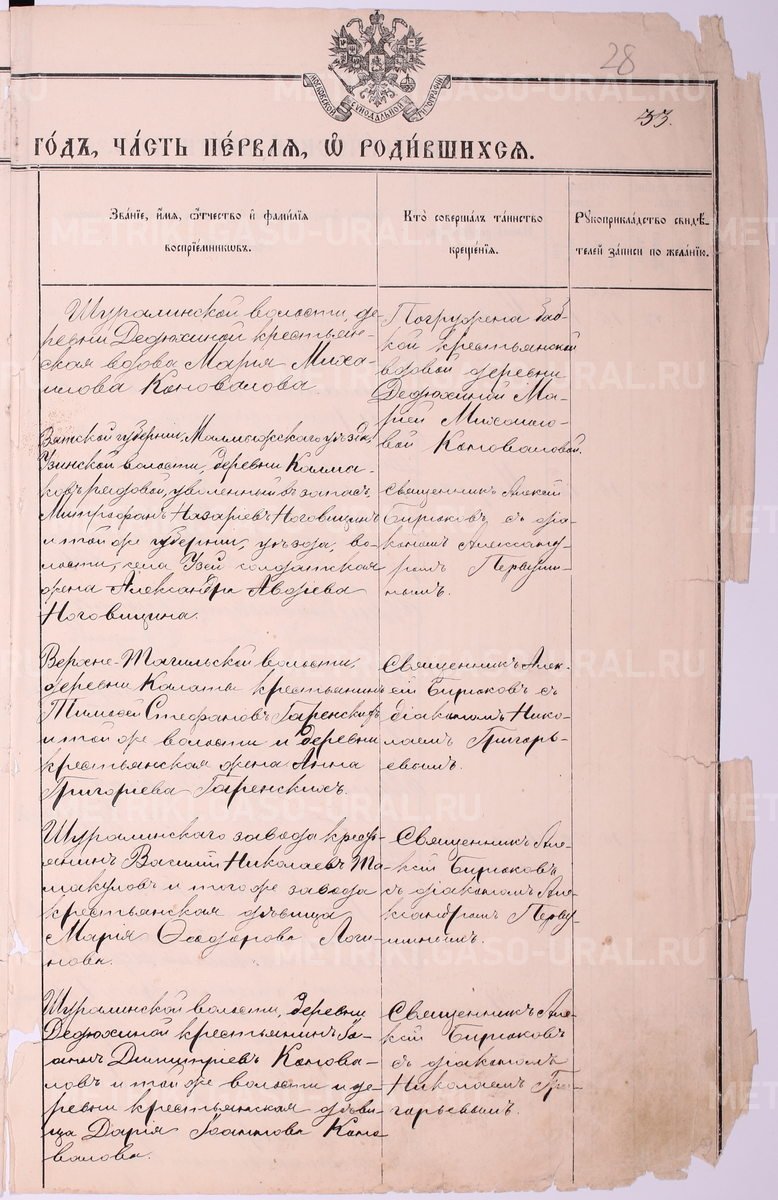 28
33.
МОСКОВСКОЙ СѴНОДАЛЬНОЙ ТИПОГРАФІИ
ГОДЪ, ЧАСТЬ ПЕРВАЯ, Ѡ РОДИВШИХСЯ.
Званіе, имя, отчество и фамилія
воспріемниковъ.
Кто совершалъ таинство
крещенія.
Рукоприкладство свидѣ-
телей записи по желанію.
Шуралинской волости, де-
ревни Дедюхиной крестьян-
ская вдова Марія Миха-
илова Коновалова
Погружена баб-
кой крестьянской
вдовой деревни
Дедюхиной Ма-
ріей Михаило-
вой Коноваловой.
Вятской губерніи, Малмыжскаго уѣзда,
Узинской волости, деревни Калма-
ковъ рядовой, уволенный въ запасъ
Митрофанъ Назаріевъ Ноговицынъ
и той же губерніи, уѣзда, во-
лости, села Узей солдатская
жена Александра Авдѣева
Ноговицина.
Священникъ Алексій
Бирюковъ, съ діа-
кономъ Александ-
ромъ Первуши-
нымъ.
Верхне-Тагильской волости,
деревни Калаты крестьянинъ
Тимофей Стефановъ Гаренскихъ
и той же волости и деревни
крестьянская жена Анна
Григориева Гаренскихъ.
Священникъ Алек-
сій Бирюковъ съ
діакономъ Нико-
лаемъ Григорь-
евымъ.
Шуралинскаго завода кресть-
янинъ Василій Николаевъ Та-
макуловъ и того же завода
крестьянская дѣвица
Марія Ѳеодорова Логи-
нова.
Священникъ Але-
ксій Бирюковъ
съ діакономъ Але-
ксандромъ Перву-
шинымъ.
Шуралинской волости, деревни
Дедюхиной крестьянинъ Іо-
аннъ Димитріевъ Конова-
ловъ и той же волости и де-
ревни крестьянская дѣви-
ца Дарія Іоаннова Коно
валова.
Священникъ Але-
ксій Бирюковъ
съ діакономъ
Николаемъ Гри-
горьевымъ.
METRIKI.GASO-URAL.RU